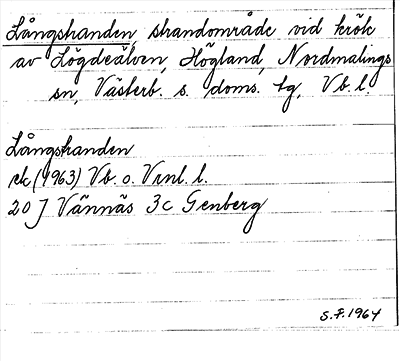 Långstranden, strandområde vid krök
av Lögdeälven, Högland, Nordmalings
sn, Västerb. s. doms. tg, Vb. l.
Långstranden
rek (1963) Vb. o. Vrnl. l.
20 J Vännäs 3c Genberg
S.F. 1964